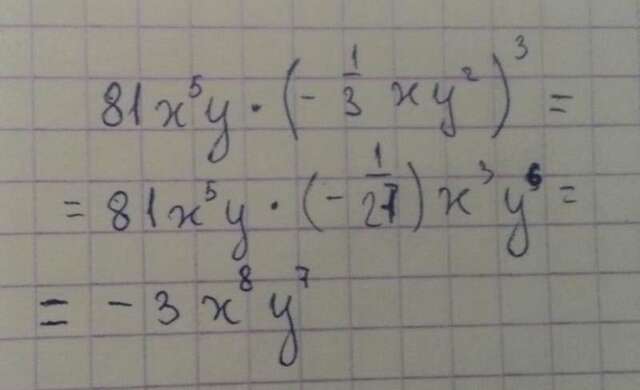 81x⁵y · (-1/3 xy²)³ =
= 81x⁵y · (-1/27) x³y⁶ =
= -3x⁸y⁷